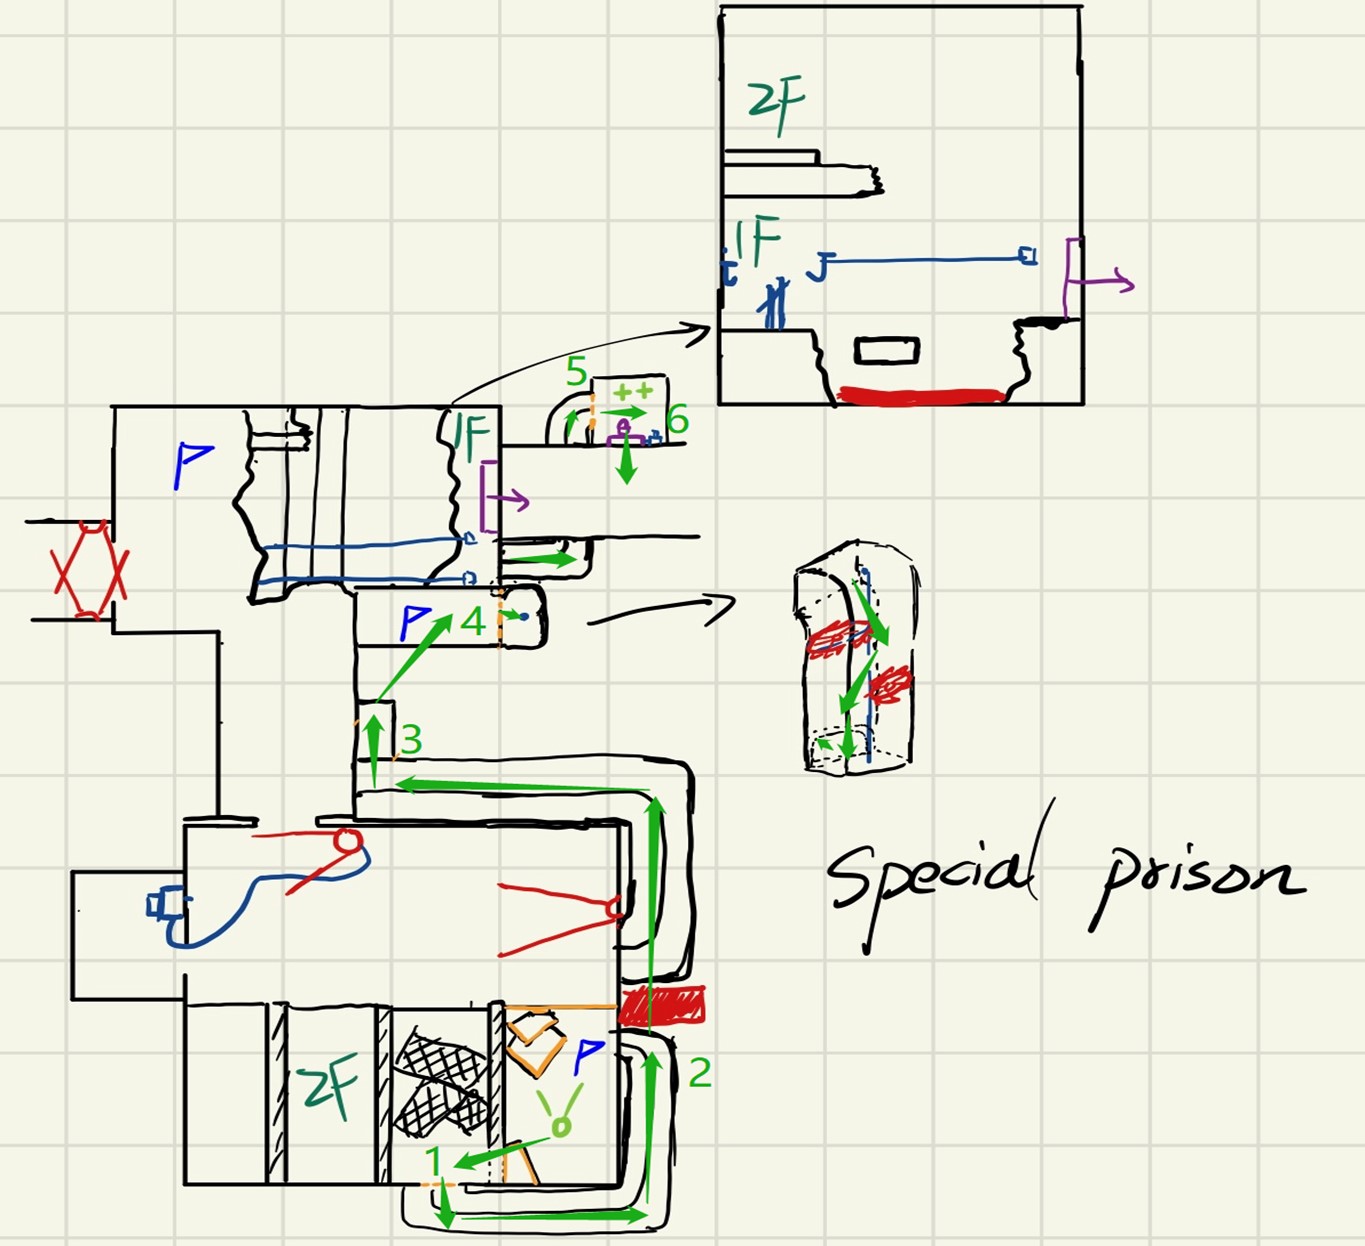 2F
1F
5
6
1F
P
P
4
3
Special prison
P
2
2F
1